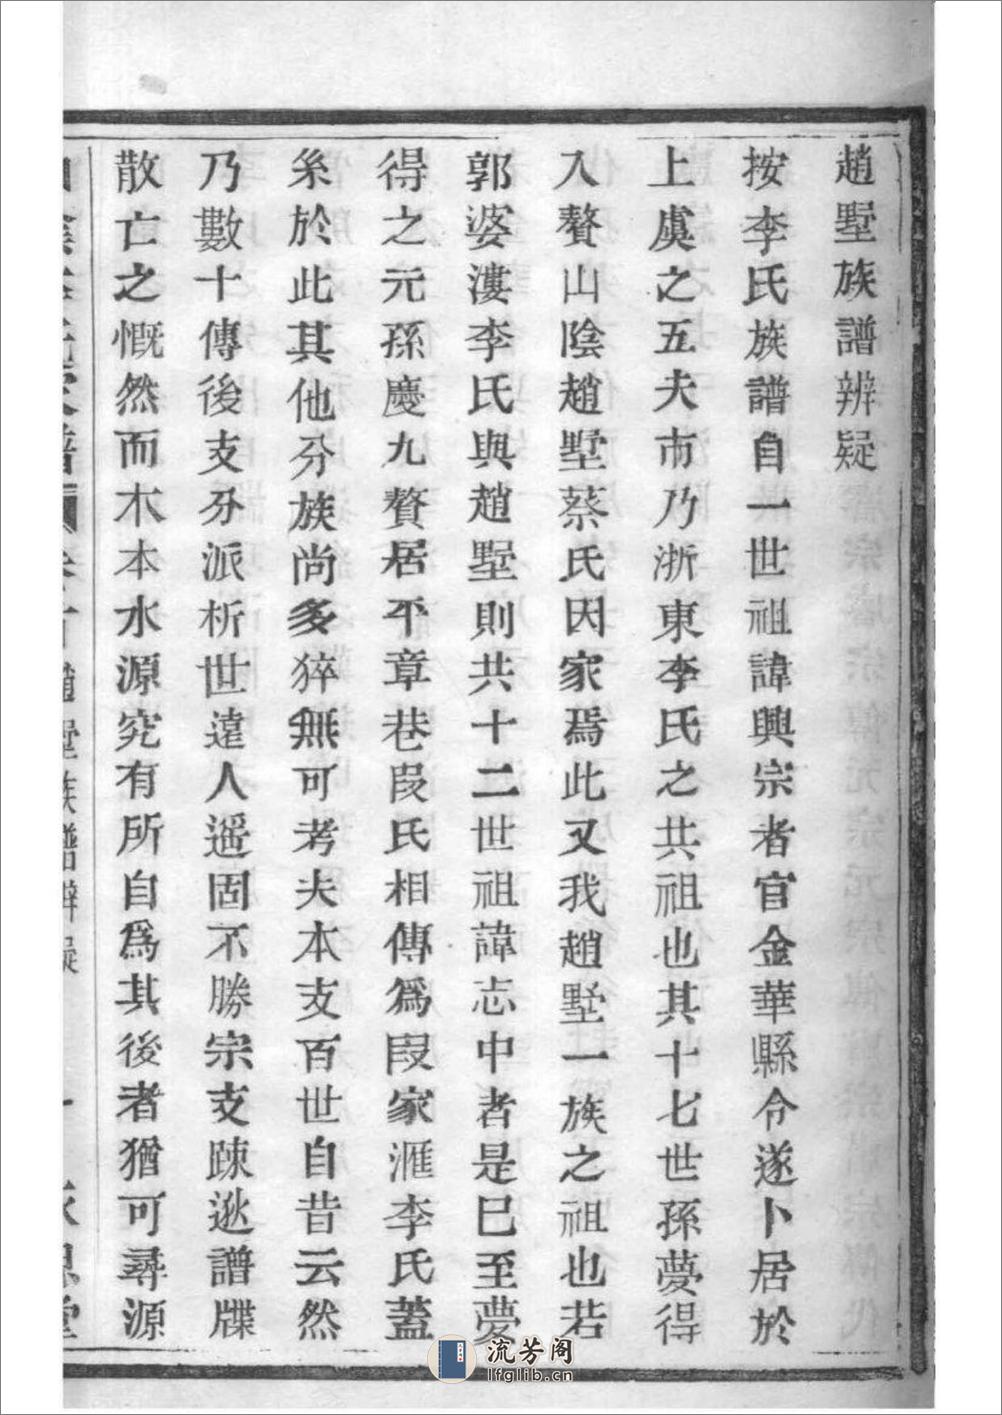 趙墅族譜辨疑
按李氏族譜自一世祖諱興宗者官金華縣令遂卜居於
上虞之五夫市乃浙東李氏之共祖也其十七世孫夢得
入贅山陰趙墅蔡氏因家焉此又我趙墅一族之祖也若
郭婆漊李氏與趙墅則共十二世祖諱志中者是巳至夢
得之元孫慶九贅居平章巷段氏相傳爲段家滙李氏蓋
糸於此其他分族尚多猝無可考夫本支百世自昔云然
乃數十傳後支分派析世遠人遥固不勝宗支踈逖譜牒
散亡之慨然而木本水源究有所自爲其後者猶可尋源
趙墅族譜辨疑
流芳阁
lfglib.cn